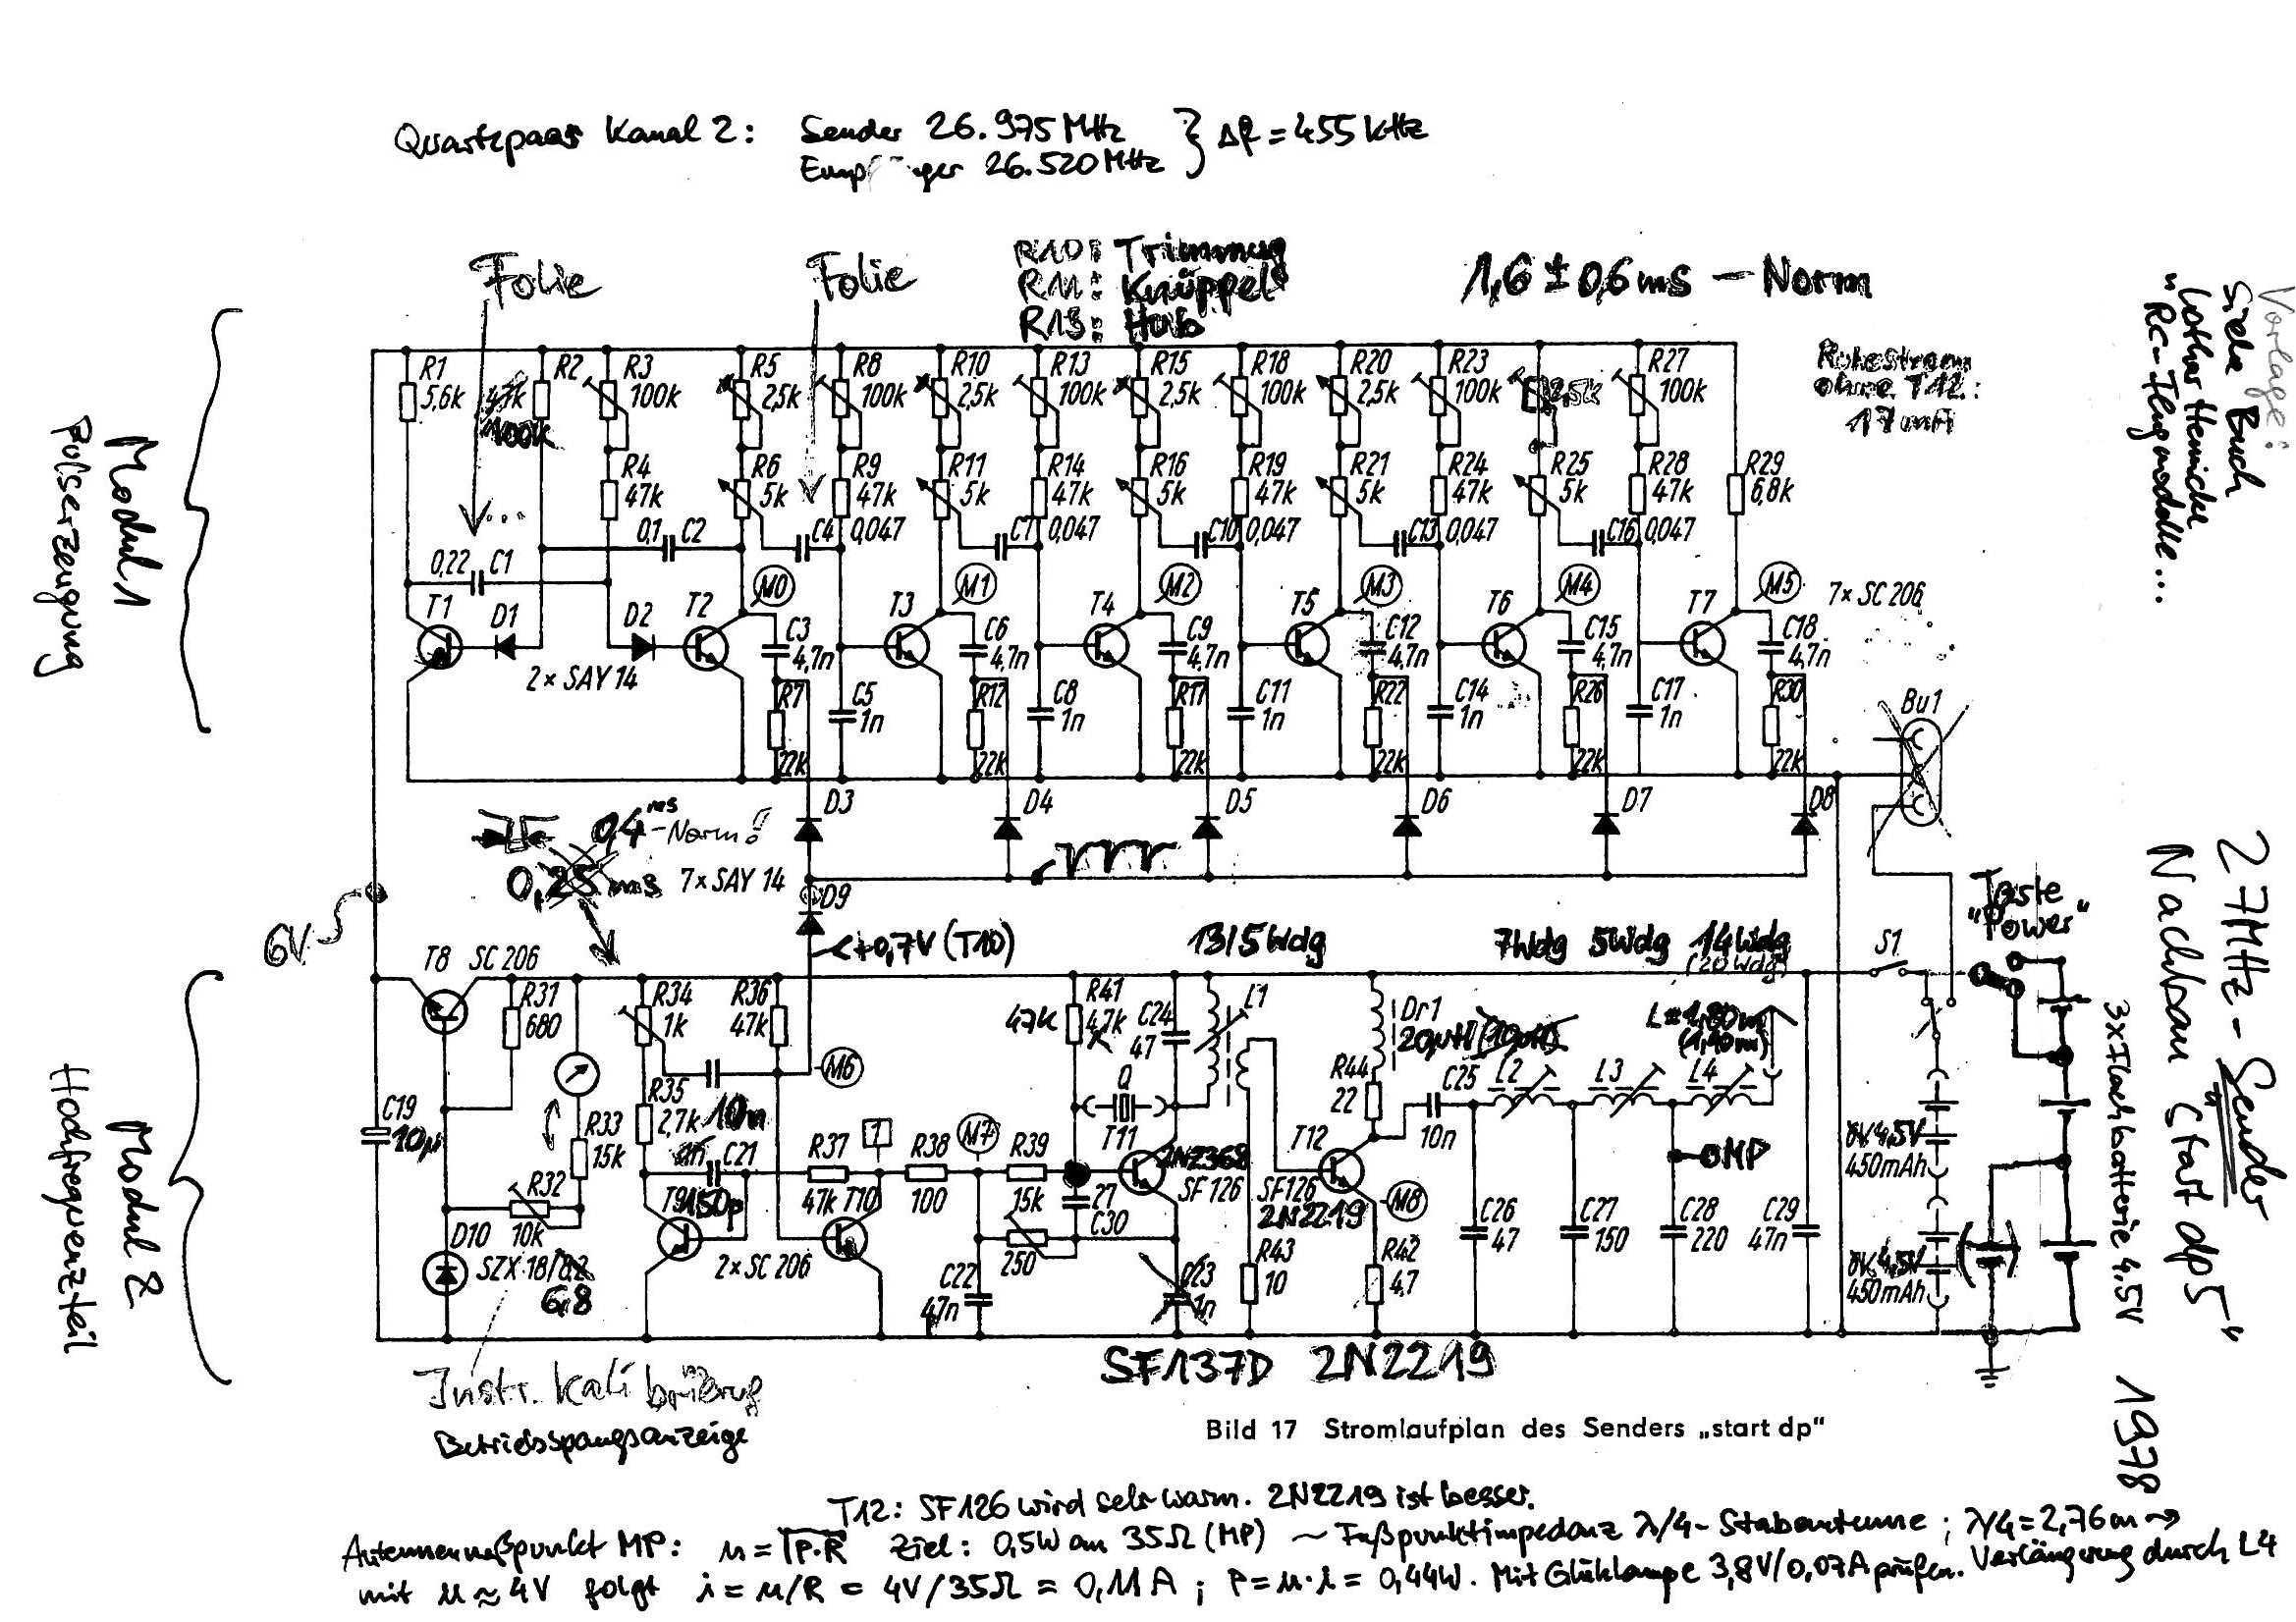 Quartzpaar Kanal 2: Sender 26.975 MHz } Δf = 455 kHz
Empfänger 26.520 MHz
Folie
Folie
R10: Trimmung
R11: Knüppel
R13: Hub
1,6 ± 0,6 ms - Norm
Vorlage:
Siehe Buch
Lothar Hennicke
"RC-Flugmodelle...
Ruhestrom
ohne T12:
17 mA
Modul 1
Pulserzeugung
R1
5,6k
R2
47k
100k
R3
100k
R5
2,5k
R8
100k
R10
2,5k
R13
100k
R15
2,5k
R18
100k
R20
2,5k
R23
100k
2,5k
R27
100k
R4
47k
R6
5k
R9
47k
R11
5k
R14
47k
R16
5k
R19
47k
R21
5k
R24
47k
R25
5k
R28
47k
R29
6,8k
0,1 C2
C4 0,047
C7 0,047
C10 0,047
C13 0,047
C16 0,047
0,22 C1
M0
M1
M2
M3
M4
M5
7x SC 206
T1
D1
D2
T2
T3
T4
T5
T6
T7
2x SAY 14
C3
4,7n
C6
4,7n
C9
4,7n
C12
4,7n
C15
4,7n
C18
4,7n
R7
22k
C5
1n
R12
22k
C8
1n
R17
22k
C11
1n
R22
22k
C14
1n
R26
22k
C17
1n
R30
22k
Bu1
D3
D4
D5
D6
D7
D8
0,4 ms - Norm!
0,25 ms
7x SAY 14
D9
6V
<+0,7V (T10)
13/5 Wdg
7Wdg 5Wdg 14Wdg
(20 Wdg)
S1
Taste
"Power"
27MHz-Sender
Nachbau "Start dp5"
1978
3xFlachbatterie 4,5V
Modul 2
Hochfrequenzteil
T8 SC 206
R31
680
R34
1k
R36
47k
M6
R41
47k
4,7k
C24
47
L1
Dr1
20µH (10µH)
L=1,80m
(1,40m)
C19
10µ
R33
15k
R35
2,7k
10n
1n C21
R37
47k
1
R38
100
M7
R39
15k
Q
T11
2N2368
SF 126
T12
SF126
2N2219
R44
22
C25
10n
L2
L3
L4
MP
M8
R32
10k
T9
150p
T10
2x SC 206
27
C30
250
D10
SZX 18/8,2
6,8
C22
47n
C23
1n
R43
10
R42
4,7
C26
47
C27
150
C28
220
C29
47n
6V 4,5V
450mAh
6V 4,5V
450mAh
Instr. Kalibrierung
Betriebsspangsanzeige
SF137D 2N2219
Bild 17 Stromlaufplan des Senders „start dp“
T12: SF126 wird sehr warm. 2N2219 ist besser.
Antennenmeßpunkt MP: u = √P·R Ziel: 0,5W an 35Ω (MP) ~ Fußpunktimpedanz λ/4-Stabantenne; λ/4 = 2,76m →
mit u ≈ 4V folgt i = u/R = 4V/35Ω = 0,11A; P = u·i = 0,44W. Mit Glühlampe 3,8V/0,07A prüfen. Verlängerung durch L4